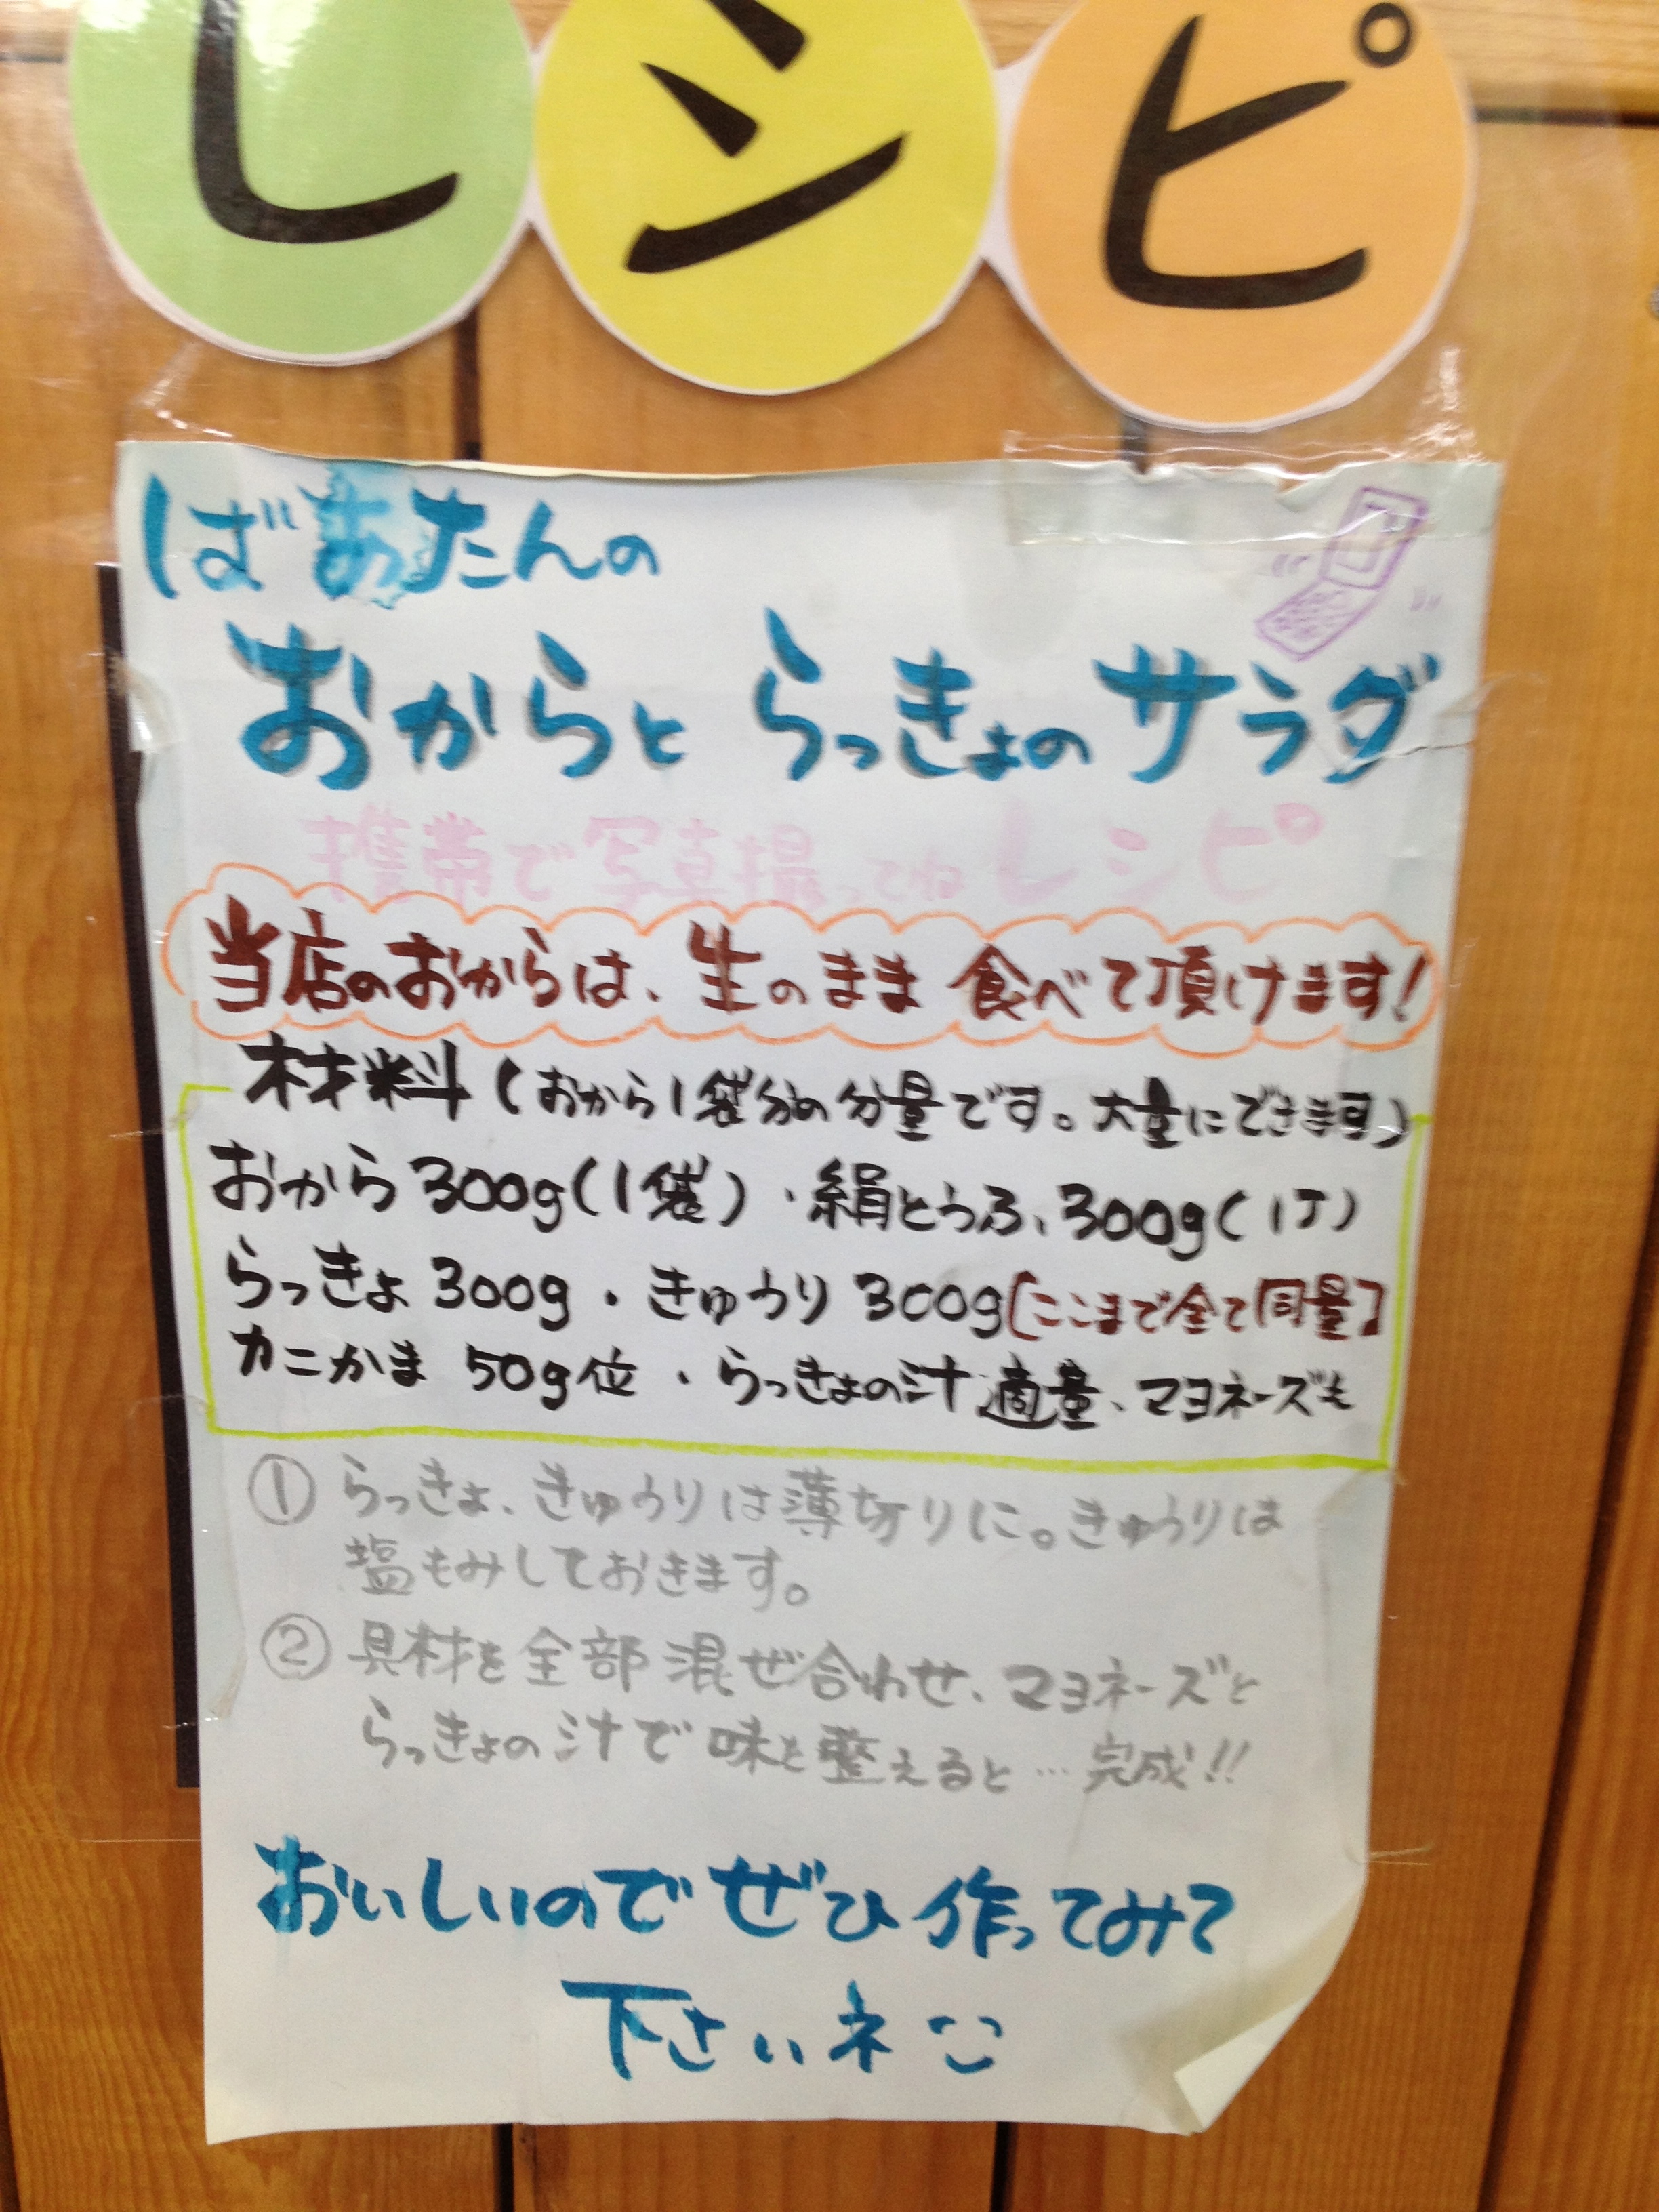 レシピ
ばあたんの
おからと らっきょのサラダ
携帯で写真撮ってね レシピ
当店のおからは、生のまま 食べて頂けます!
材料(おから1袋分の分量です。大量にできます)
おから 300g(1袋)・絹とうふ、300g(1丁)
らっきょ 300g・きゅうり 300g[ここまで全て同量]
カニかま 50g位・らっきょの汁適量、マヨネーズも
① らっきょ、きゅうりは薄切りに。きゅうりは
塩もみしておきます。
② 具材を全部 混ぜ合わせ、マヨネーズと
らっきょの汁で味を整えると…完成!!
おいしいのでぜひ作ってみて
下さいネ